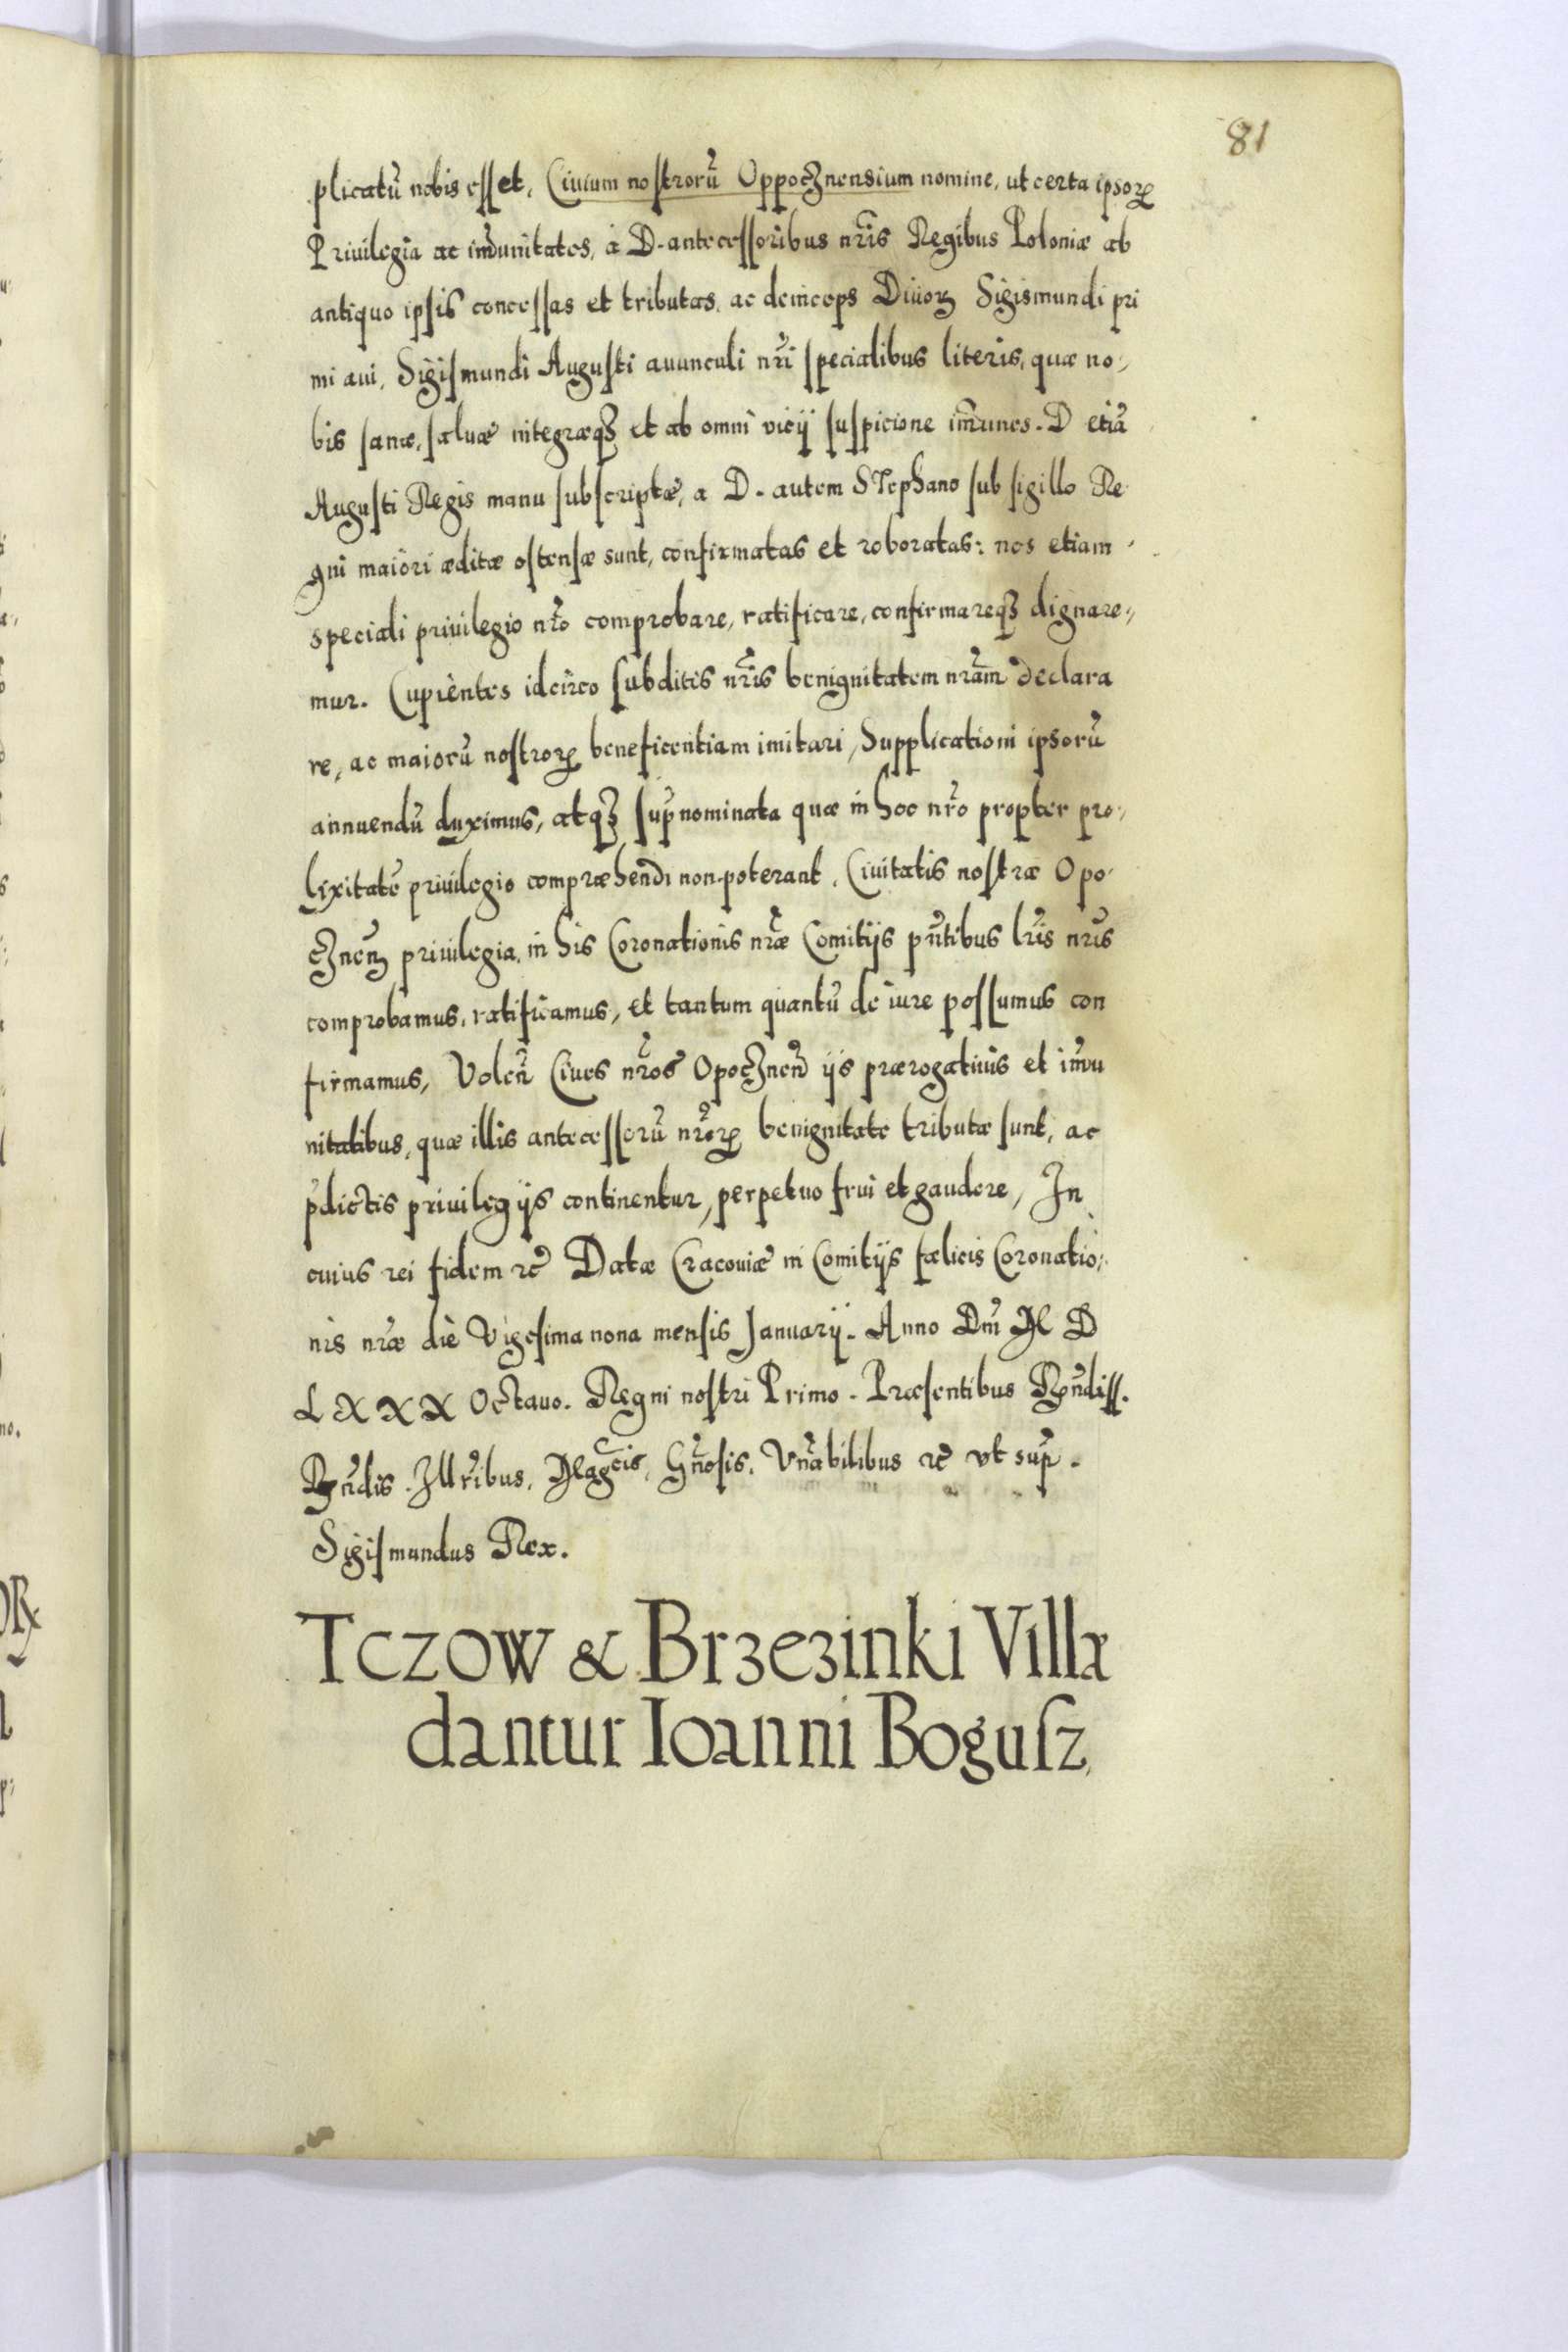 81
plicatū nobis esset, Ciuium nostrorū Oppocznensium nomine, ut certa ipsoꝝ
Priuilegia ac im̄unitates, à D. antecessoribus nr̄is Regibus Poloniæ ab
antiquo ipsis concessas et tributas, ac deinceps Diuoꝝ Sigismundi pri
mi aui, Sigismundi Augusti auunculi nr̄i specialibus literis, quæ no-
bis sanæ, saluæ integræqꝫ et ab omni vicij suspicione im̄unes. D etiā
Augusti Regis manu subscriptæ, a D. autem Stephano sub sigillo Re
gni maiori æditæ ostensæ sunt, confirmatas et roboratas: nos etiam
speciali priuilegio nr̄o comprobare, ratificare, confirmareqꝫ dignare-
mur. Cupientes idcirco subditis nr̄is benignitatem nr̄am declara
re, ac maiorū nostroꝝ beneficentiam imitari, Supplicationi ipsorū
annuendū duximus, atqꝫ sup̄nominata quæ in hoc nr̄o propter pro-
lixitatē priuilegio compræhendi non poterant, Ciuitatis nostræ Opo-
cznen̄ priuilegia, in his Coronationis nr̄æ Comitijs pn̄tibus lr̄is nr̄is
comprobamus, ratificamus, et tantum quantū de iure possumus con
firmamus, Volen̄ Ciues nr̄os Opocznen̄ ijs prærogatiuis et im̄u
nitatibus, quæ illis antecessorū nr̄oꝝ benignitate tributæ sunt, ac
p̄dictis priuilegijs continentur, perpetuo frui et gaudere, In
cuius rei fidem ꝛc̄ Datæ Cracouiæ in Comitijs fælicis Coronatio-
nis nr̄æ die Vigesima nona mensis Januarij. Anno Dn̄i M D
LXXX Octauo. Regni nostri Primo. Præsentibus Rn̄diss.
Rn̄dis. Illr̄ibus, Mag͞cis, Gn̄osis, Vn̄abilibus ꝛc̄ vt sup̄.
Sigismundus Rex.
Tczow & Brzezinki Villæ
dantur Ioanni Bogusz,